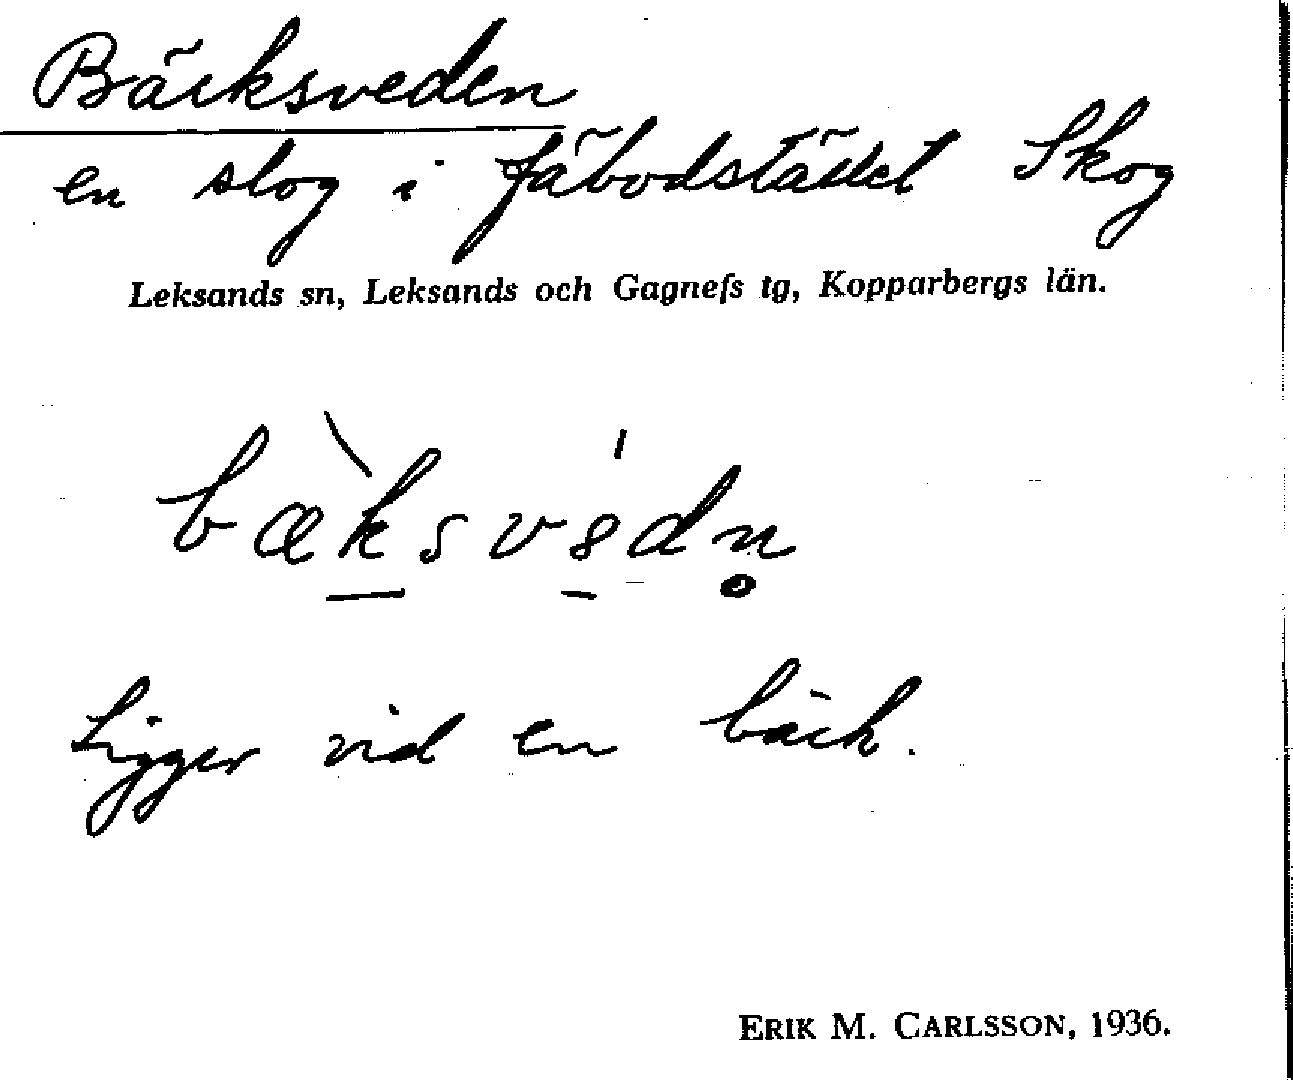 Bäcksveden
en slog i fäbodstället Skog
Leksands sn, Leksands och Gagnefs tg, Kopparbergs län.
bæ̀k̲svę̍dn̥
Ligger vid en bäck.
ERIK M. CARLSSON, 1936.